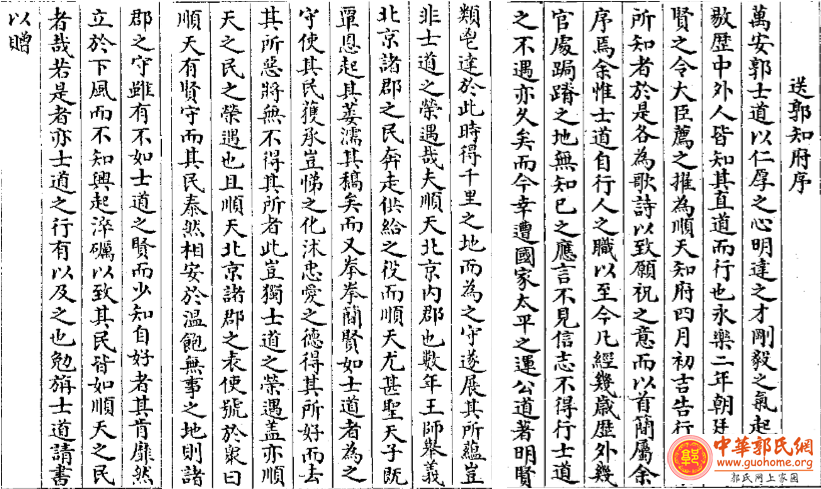 送郭知府序
萬安郭士道以仁厚之心明達之才剛毅之氣起
敭歷中外人皆知其直道而行也永樂二年朝廷
賢之令大臣薦之擢為順天知府四月初吉告行
所知者於是各為歌詩以致願祝之意而以首簡屬余
序焉余惟士道自行人之職以至今凡經幾歲歷外幾
官處跼蹐之地無知已之應言不見信志不得行士道
之不遇亦久矣而今幸遭國家太平之運公道著明賢
類達於此時得千里之地而為之守遂展其所蘊豈
非士道之榮遇哉夫順天北京內郡也數年王師舉義
北京諸郡之民奔走供給之役而順天尤甚聖天子既
覃恩起其萎濡其稿矣而又拳拳簡賢如士道者為之
守使其民獲承豈悌之化沐惠愛之德得其所好而去
其所惡將無不得其所者此豈獨士道之榮遇盖亦順
天之民之榮遇也且順天北京諸郡之表使號於衆曰
順天有賢守而其民泰然相安於溫飽無事之地則諸
郡之守雖有不如士道之賢而少知自好者其肯靡然
立於下風而不知興起淬礪以致其民皆如順天之民
者哉若是者亦士道之行有以及之也勉旃士道請書
以贈
中華郭氏網
www.guohome.org
郭氏网上家园